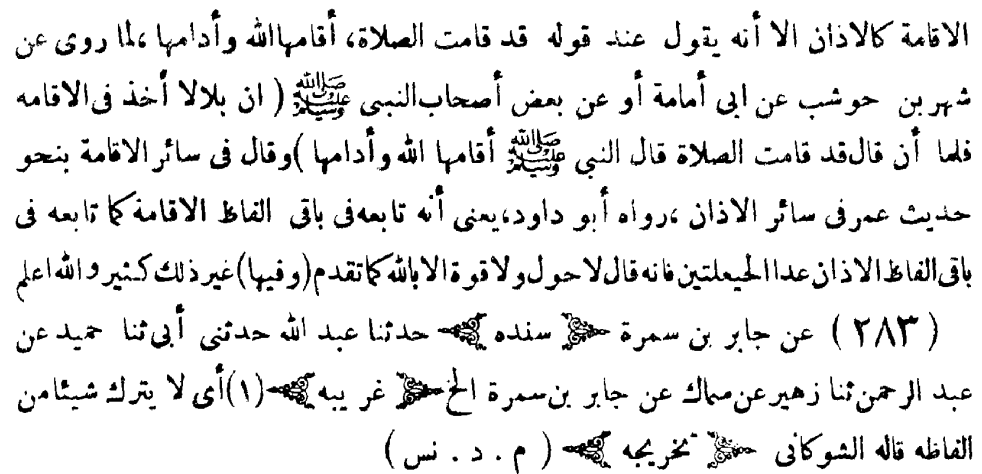 الاقامة كالاذان الا أنه يقول عند قوله قد قامت الصلاة، أقامها الله وأدامها ،لما روى عن
شهر بن حوشب عن ابى أمامة أو عن بعض أصحاب النبى ﷺ ( ان بلالا أخذ فى الاقامه
فلما أن قال قد قامت الصلاة قال النبي ﷺ أقامها الله وأدامها )وقال فى سائر الاقامة بنحو
حديث عمر فى سائر الاذان ،رواه أبو داود،يعنى أنه تابعه فى باقى الفاظ الاقامة كما تابعه فى
باقى الفاظ الاذان عدا الحيعلتين فانه قال لاحول ولا قوة الا بالله كما تقدم (وفيها)غير ذلك كثير والله اعلم
( ٢٨٣ ) عن جابر بن سمرة سنده حدثنا عبد الله حدثنى أبى ثنا حميد عن
عبد الرحمن ثنا زهير عن سماك عن جابر بن سمرة الخ غريبه (١)أى لا يترك شيئا من
الفاظه قاله الشوكانى تخريجه ( م . د . نس )